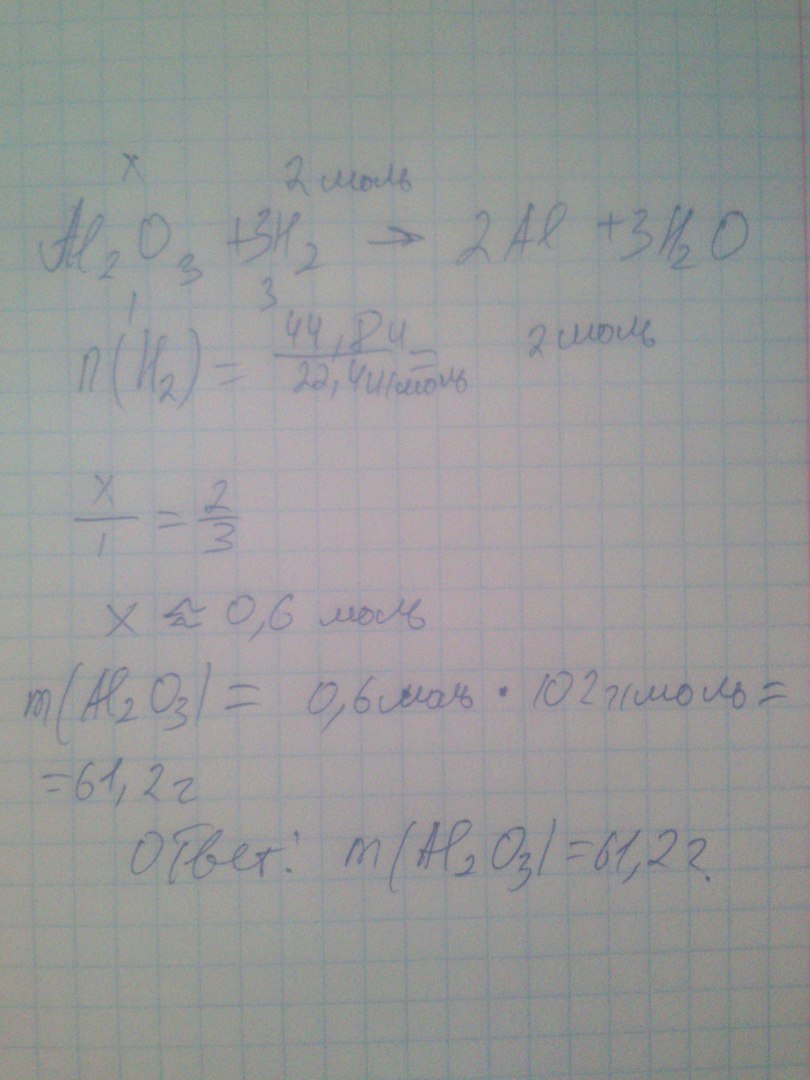 x 2 моль
Al₂O₃ +3H₂ → 2Al +3H₂O
1 3
n(H₂) = 44,8л / 22,4л/моль = 2 моль
x/1 = 2/3
x ≈ 0,6 моль
m(Al₂O₃) = 0,6моль · 102г/моль =
=61,2г
Ответ: m(Al₂O₃)=61,2г.